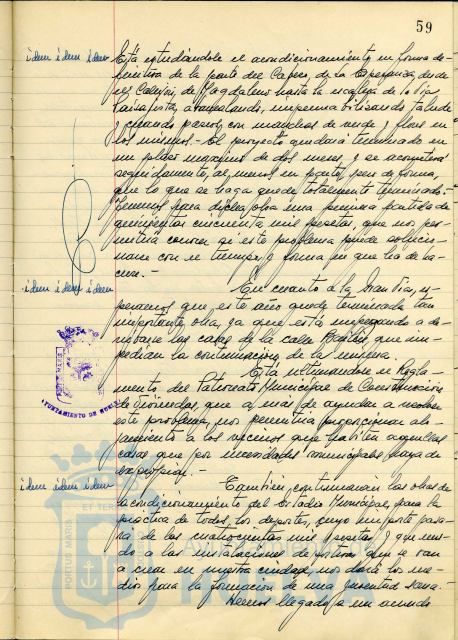 59
idem idem idem
Está estudiándose el acondicionamiento en forma de-
finitiva de la parte del Cabezo de la Esperanza, desde
el Callejón de Magdalena hasta la escalera de la Vía
Paisajista, abancalando, impermeabilizando taludes
y creando paseos con manchas de verde y flores en
los mismos. - El proyecto quedará terminado en
un plazo máximo de dos meses y se acometerá
seguidamente, al menos en parte, pero de forma,
que lo que se haga quede totalmente terminado. -
Tenemos para dicha obra una primera partida de
quinientas cincuenta mil pesetas, que nos per-
mitirá conocer si este problema puede solucio-
narse con el tiempo y forma en que ha de ha-
cerse. -
idem idem idem
En cuanto a la Gran Vía, es-
peramos que este año quede terminada tan
importante obra, ya que está empezando a de-
rribarse las casas de la calle que im-
pedían la continuación de la misma.
Está ultimándose el Regla-
mento del Patronato Municipal de Construcción
de Viviendas, que a más de ayudar a resolver
este problema, nos permitirá proporcionar alo-
jamiento a los vecinos que habiten aquellas
casas que por necesidades municipales haya de
expropiar. -
AYUNTAMIENTO DE HUELVA
idem idem idem
También, continuarán las obras de
acondicionamiento del Estadio Municipal, para la
práctica de todos los deportes, cuyo importe pasa-
rá de las cuatrocientas mil pesetas y que uni-
do a las instalaciones deportivas que se van
a crear en nuestra ciudad, nos dará los me-
dios para la formación de una juventud sana.
Hemos llegado a un acuerdo
PORTUS MARIS ET TERRAE